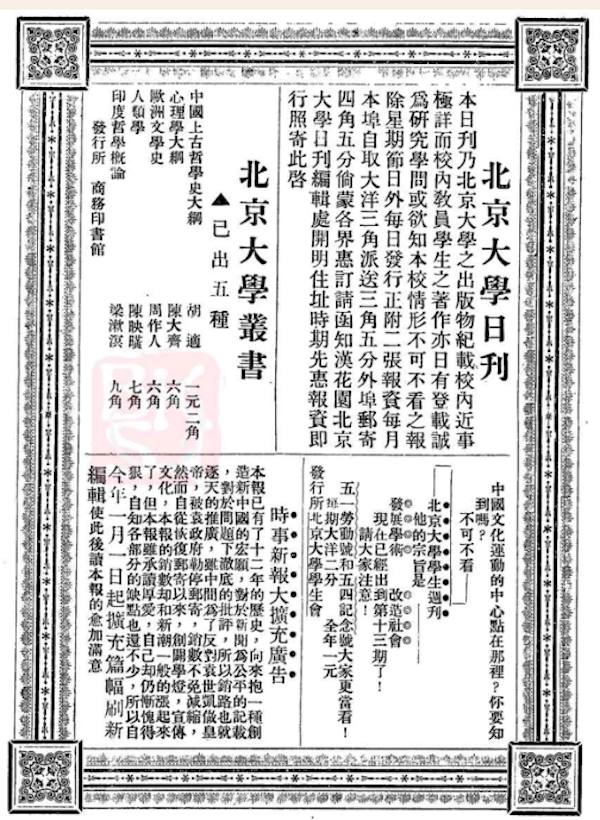 北京大學日刊
本日刊乃北京大學之出版物紀載校內近事
極詳而校內敎員學生之著作亦日有登載誠
爲研究學問或欲知本校情形不可不看之報
除星期節日外每日發行正附二張報資每月
本埠自取大洋三角派送三角五分外埠郵寄
四角五分倘蒙各界惠訂請函知漢花園北京
大學日刊編輯處開明住址時期先惠報資即
行照寄此啓
北京大學叢書
▲已出五種
中國上古哲學史大綱 胡適 一元二角
心理學大綱 陳大齊 六角
歐洲文學史 周作人 六角
人類學 陳映璜 七角
印度哲學槪論 梁漱溟 九角
發行所 商務印書館
中國文化運動的中心點在那裡?你要知
到嗎?
不可不看
北京大學學生週刊
他的宗旨是
發展學術 改造社會
現在已經出到第十三期了!
請大家注意!
五一勞動號和五四記念號大家更當看!
每期大洋二分 全年一元
發行所北京大學學生會
時事新報大擴充廣告
本報已有了十二年的歷史,向來抱一種創
造新中國的宏願,對於新聞爲公平的記載
,對於問題下澈底的批評,所以銷路也就
逐天的推廣,雖中間爲了反對袁世凱做皇
帝,被袁政府勒停郵寄,銷數不免減縮,
然而自從恢復郵寄以來,創闢學燈,宣傳
文化,本報的銷數却和新潮一般的漲起來
了,但本報雖承讀厚愛,自己却仍慚愧得
狠,自知各部分的缺點也還不少,所以自
今年一月一日起擴充篇幅刷新
編輯使此後讀本報的愈加滿意